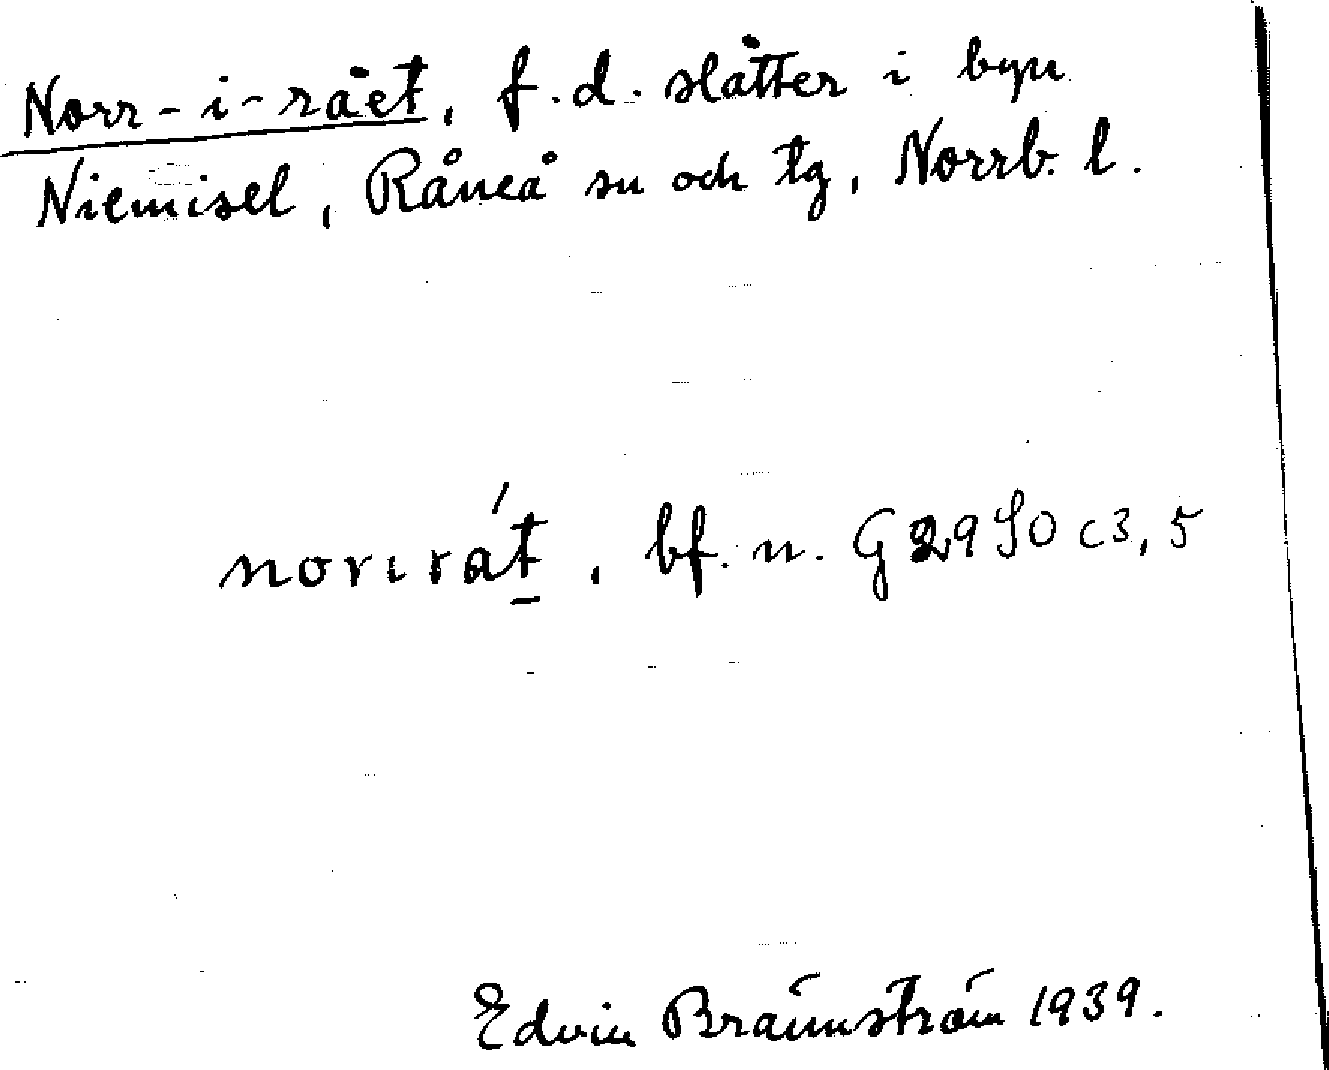 Norr-i-råët, f.d. slåtter i byn
Niemisel, Råneå sn och tg, Norrb. l.
norɩrát, bf. n. G 29 SO c3, 5
Edvin Brännström 1939.